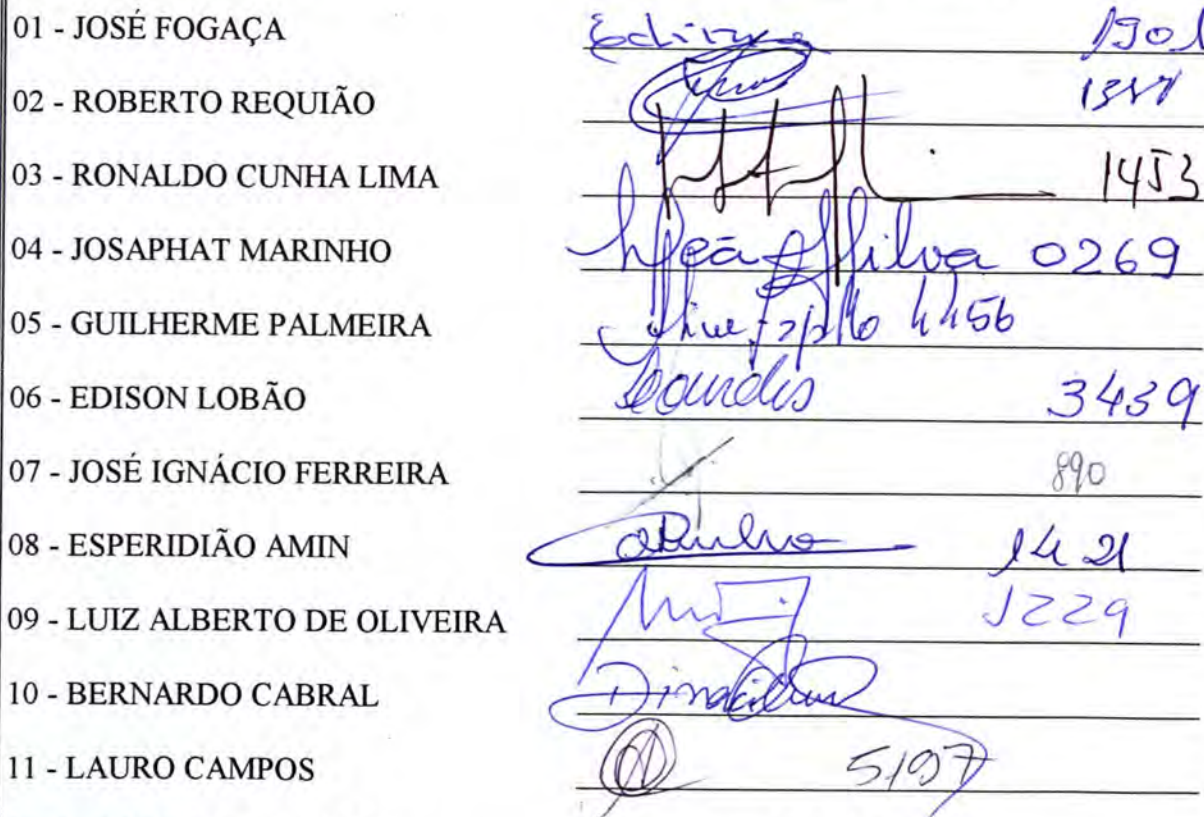 01 - JOSÉ FOGAÇA 1901
02 - ROBERTO REQUIÃO
03 - RONALDO CUNHA LIMA 1453
04 - JOSAPHAT MARINHO Silva 0269
05 - GUILHERME PALMEIRA 4456
06 - EDISON LOBÃO Lourdes 3439
07 - JOSÉ IGNÁCIO FERREIRA 890
08 - ESPERIDIÃO AMIN 1421
09 - LUIZ ALBERTO DE OLIVEIRA 1229
10 - BERNARDO CABRAL
11 - LAURO CAMPOS 5197